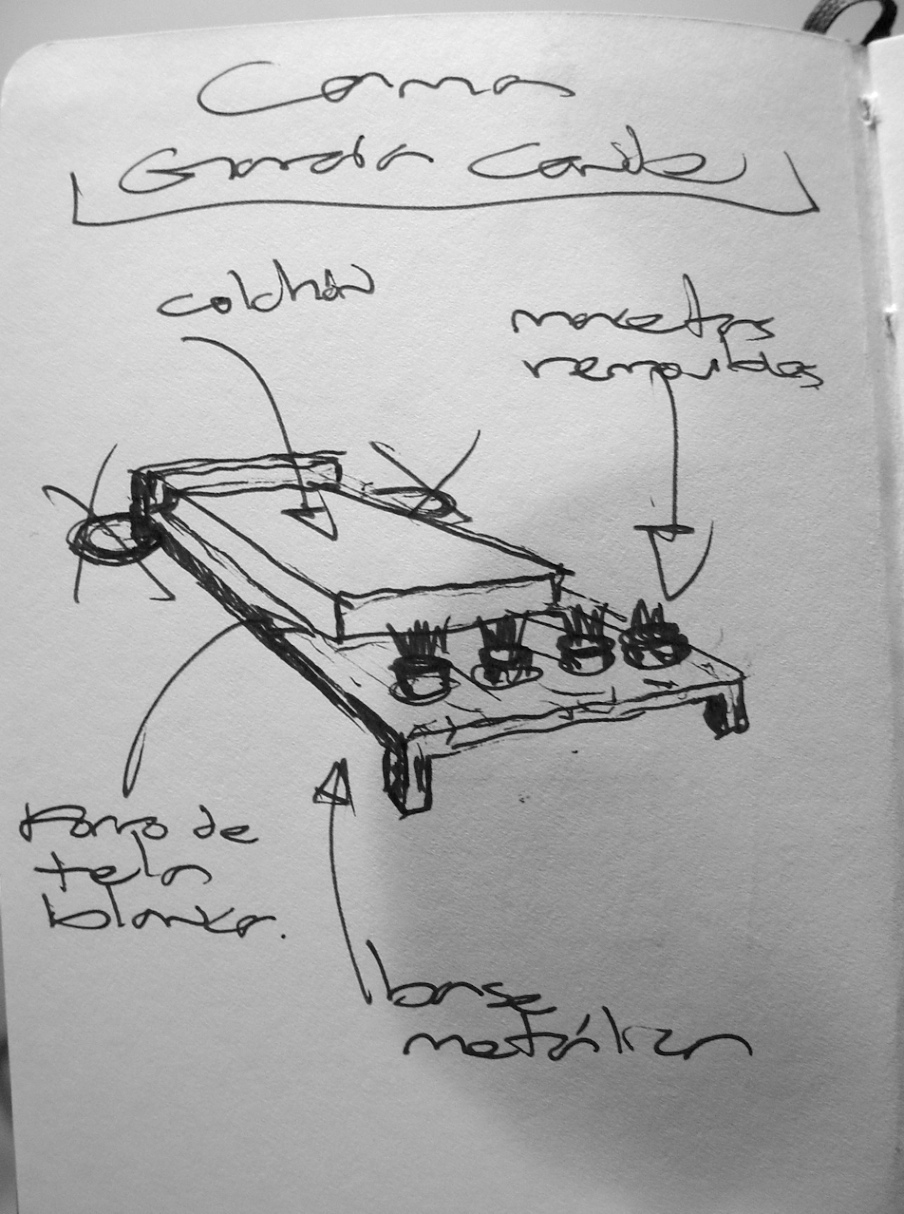 Cama
Caribe
colchón
macetas
removibles
Forro de
tela
blanca.
base
metálica